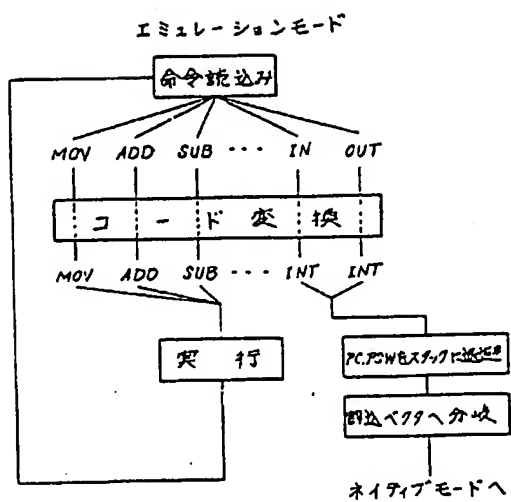 エミュレーションモード
命令読込み
MOV ADD SUB ・・・ IN OUT
コード変換
MOV ADD SUB ・・・ INT INT
実行
PC.PSWをスタックに退避
割込ベクタへ分岐
ネイティブモードへ